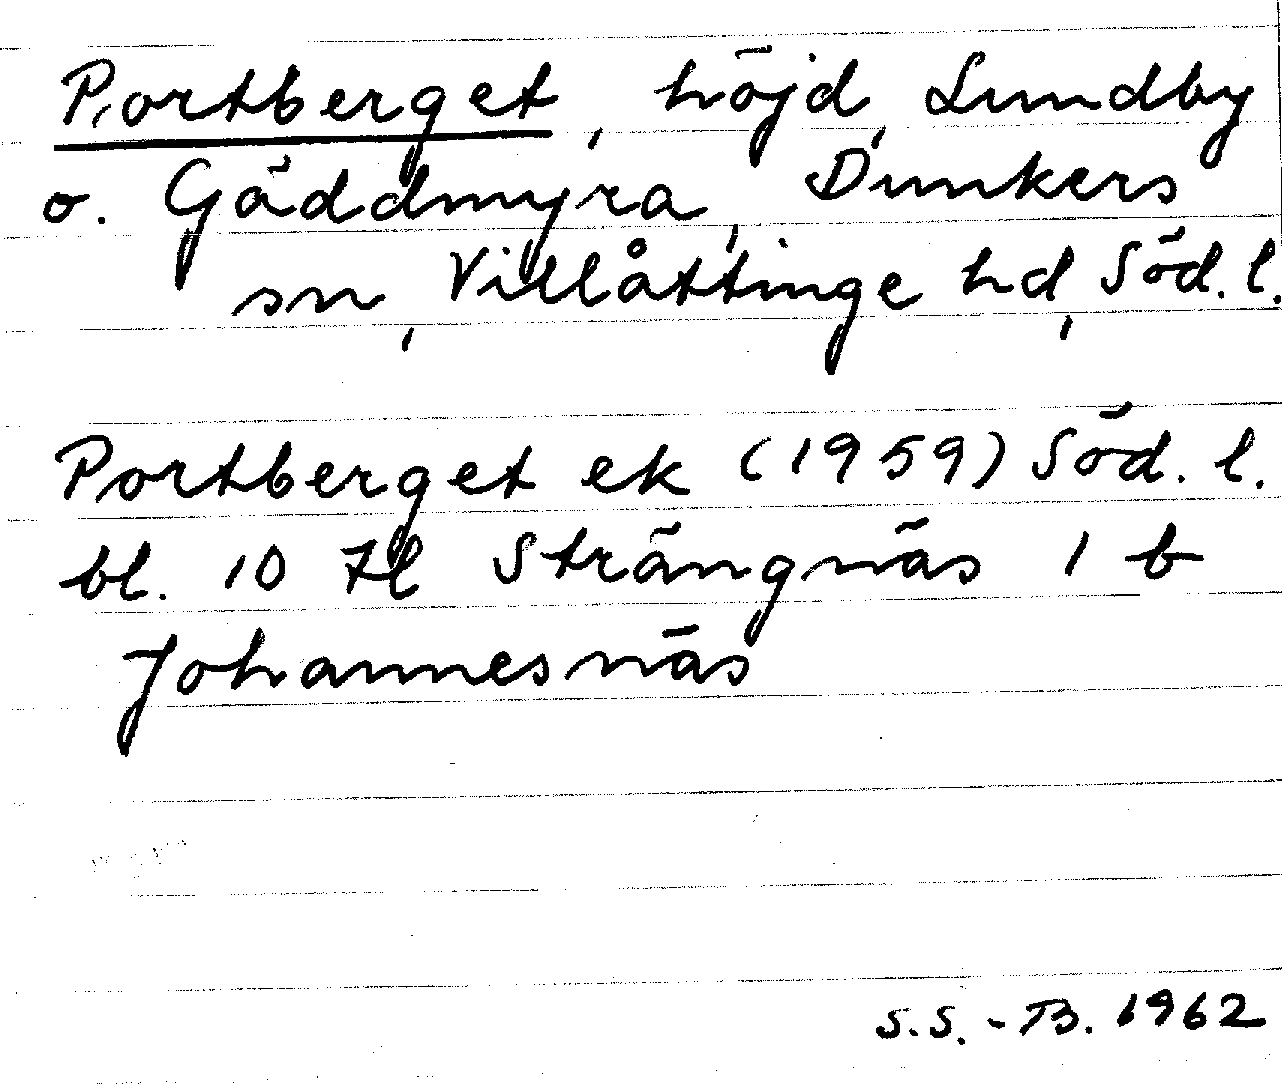 Portberget, höjd, Lundby
o. Gäddmyra, Dunkers
sn, Villåttinge hd, Söd. l.
Portberget ek (1959) Söd. l.
bl. 10 H Strängnäs 1 b
Johannesnäs
S.S.-B. 1962